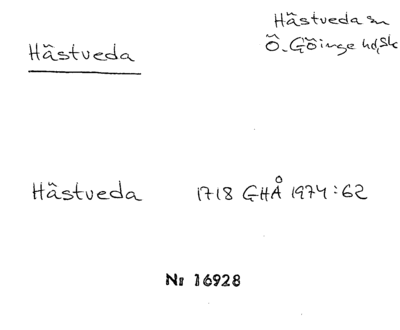 Hästveda
Hästveda sn
Ö. Göinge hd, Sk
Hästveda 1718 GHÅ 1974:62
Nr 16928